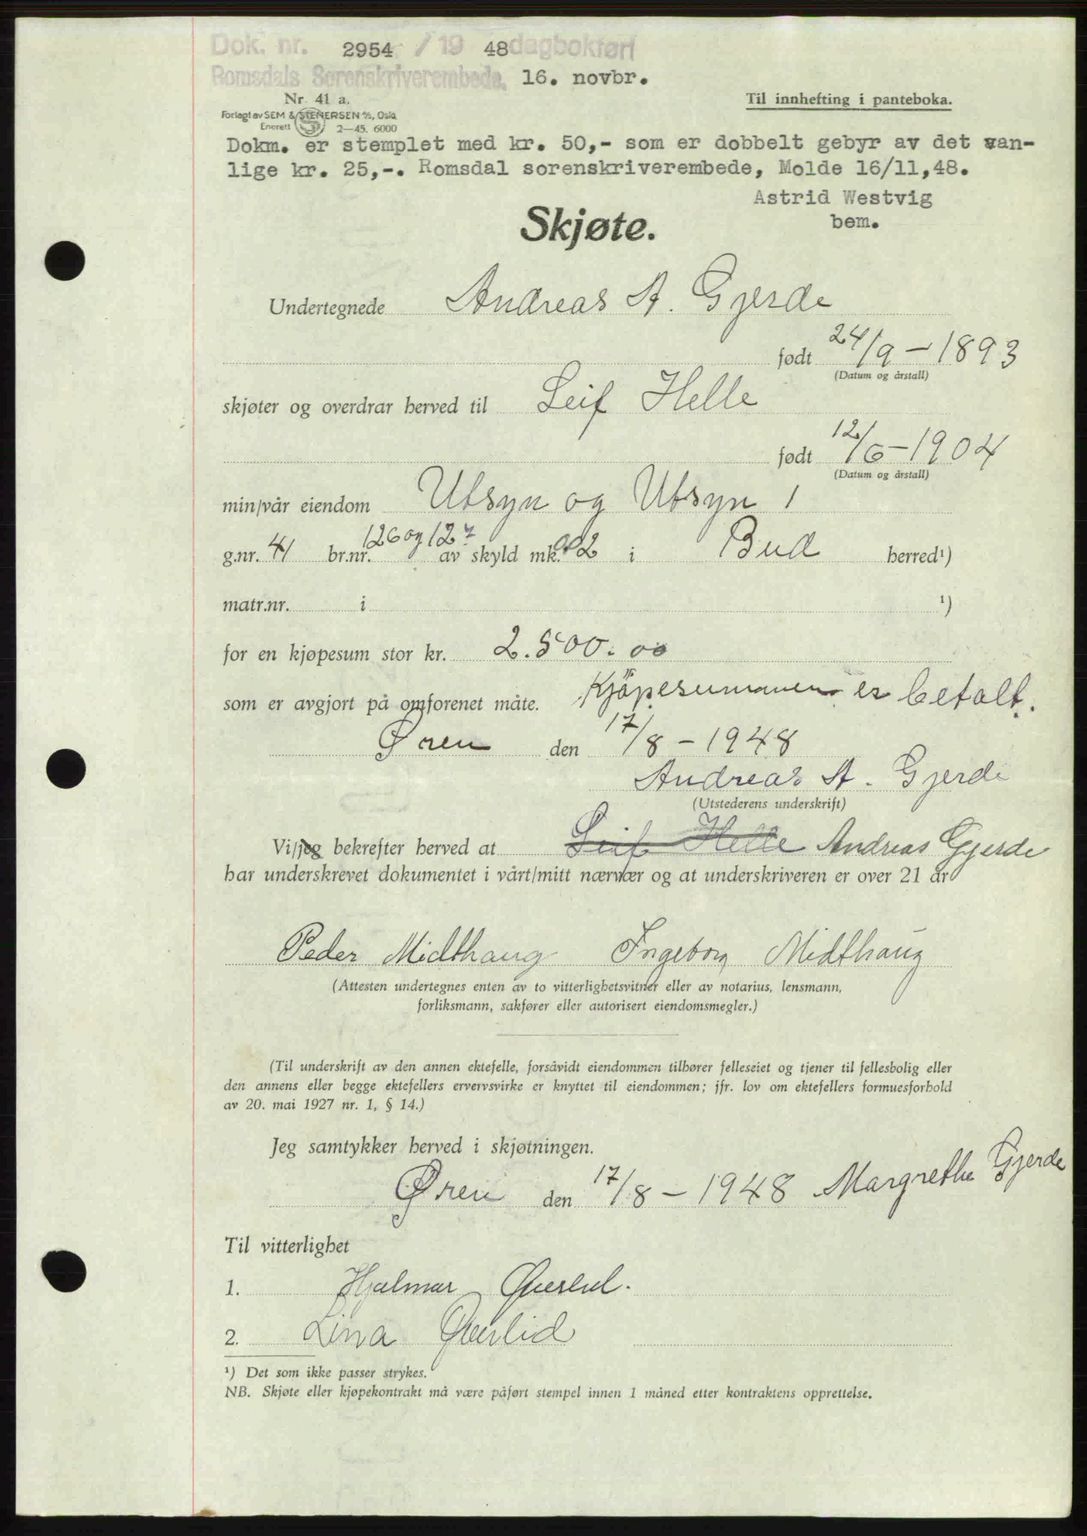 Dok. nr. 2954 / 19 48 dagbokført
Romsdals Sorenskriverembede, 16. novbr.
Nr. 41 a.
Til innhefting i panteboka.
Forlagt av SEM & STENERSEN A/S, Oslo
Enerett 2—45. 6000
Dokm. er stemplet med kr. 50,- som er dobbelt gebyr av det van-
lige kr. 25,-. Romsdal sorenskriverembede, Molde 16/11,48.
Astrid Westvig
bem.
Skjøte.
Undertegnede Andreas A. Gjerde
født 24/9 – 1893
(Datum og årstall)
skjøter og overdrar herved til Leif Helle
født 12/6 – 1904
(Datum og årstall)
min/vår eiendom Utsyn og Utsyn 1
g.nr. 41 br.nr. 126 og 127 av skyld mk. 002 i Bud herred¹)
matr.nr. i ¹)
for en kjøpesum stor kr. 2.500.00
som er avgjort på omforenet måte. Kjöpesummen er betalt.
Øren den 17/8 – 1948
Andreas A. Gjerde
(Utstederens underskrift)
Vi/jeg bekrefter herved at Leif Helle Andreas Gjerde
har underskrevet dokumentet i vårt/mitt nærvær og at underskriveren er over 21 år
Peder Midthaug Ingeborg Midthaug
(Attesten undertegnes enten av to vitterlighetsvitner eller av notarius, lensmann,
forliksmann, sakfører eller autorisert eiendomsmegler.)
(Til underskrift av den annen ektefelle, forsåvidt eiendommen tilhører felleseiet og tjener til fellesbolig eller
den annens eller begge ektefellers ervervsvirke er knyttet til eiendommen; jfr. lov om ektefellers formuesforhold
av 20. mai 1927 nr. 1, § 14.)
Jeg samtykker herved i skjøtningen.
Øren den 17/8 – 1948 Margrethe Gjerde
Til vitterlighet
1. Hjalmar
2. Lina Øverlid
¹) Det som ikke passer strykes.
NB. Skjøte eller kjøpekontrakt må være påført stempel innen 1 måned etter kontraktens opprettelse.